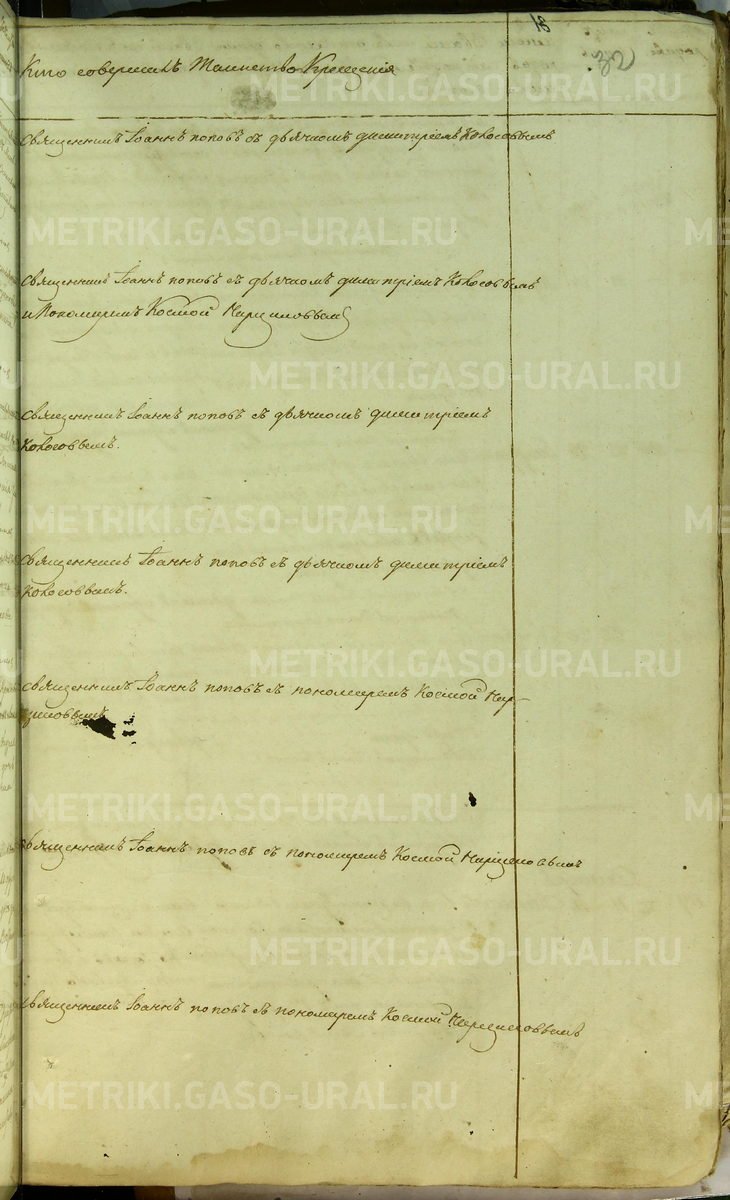 18
32
Кто совершилъ Таинство Крещенія
Священникъ Іоаннъ поповъ съ дьячкомъ димитріемъ Колосовымъ
METRIKI.GASO-URAL.RU
Священникъ Іоаннъ поповъ съ дьячкомъ димитріемъ Колосовымъ
и Пономаремъ Космой
METRIKI.GASO-URAL.RU
Священникъ Іоаннъ поповъ съ дьячкомъ димитріемъ
Колосовымъ.
METRIKI.GASO-URAL.RU
Священникъ Іоаннъ поповъ съ дьячкомъ димитріемъ
Колосовымъ.
METRIKI.GASO-URAL.RU
Священникъ Іоаннъ поповъ съ пономаремъ Космой
METRIKI.GASO-URAL.RU
Священникъ Іоаннъ поповъ съ пономаремъ Космой
METRIKI.GASO-URAL.RU
Священникъ Іоаннъ поповъ съ пономаремъ Космой
METRIKI.GASO-URAL.RU